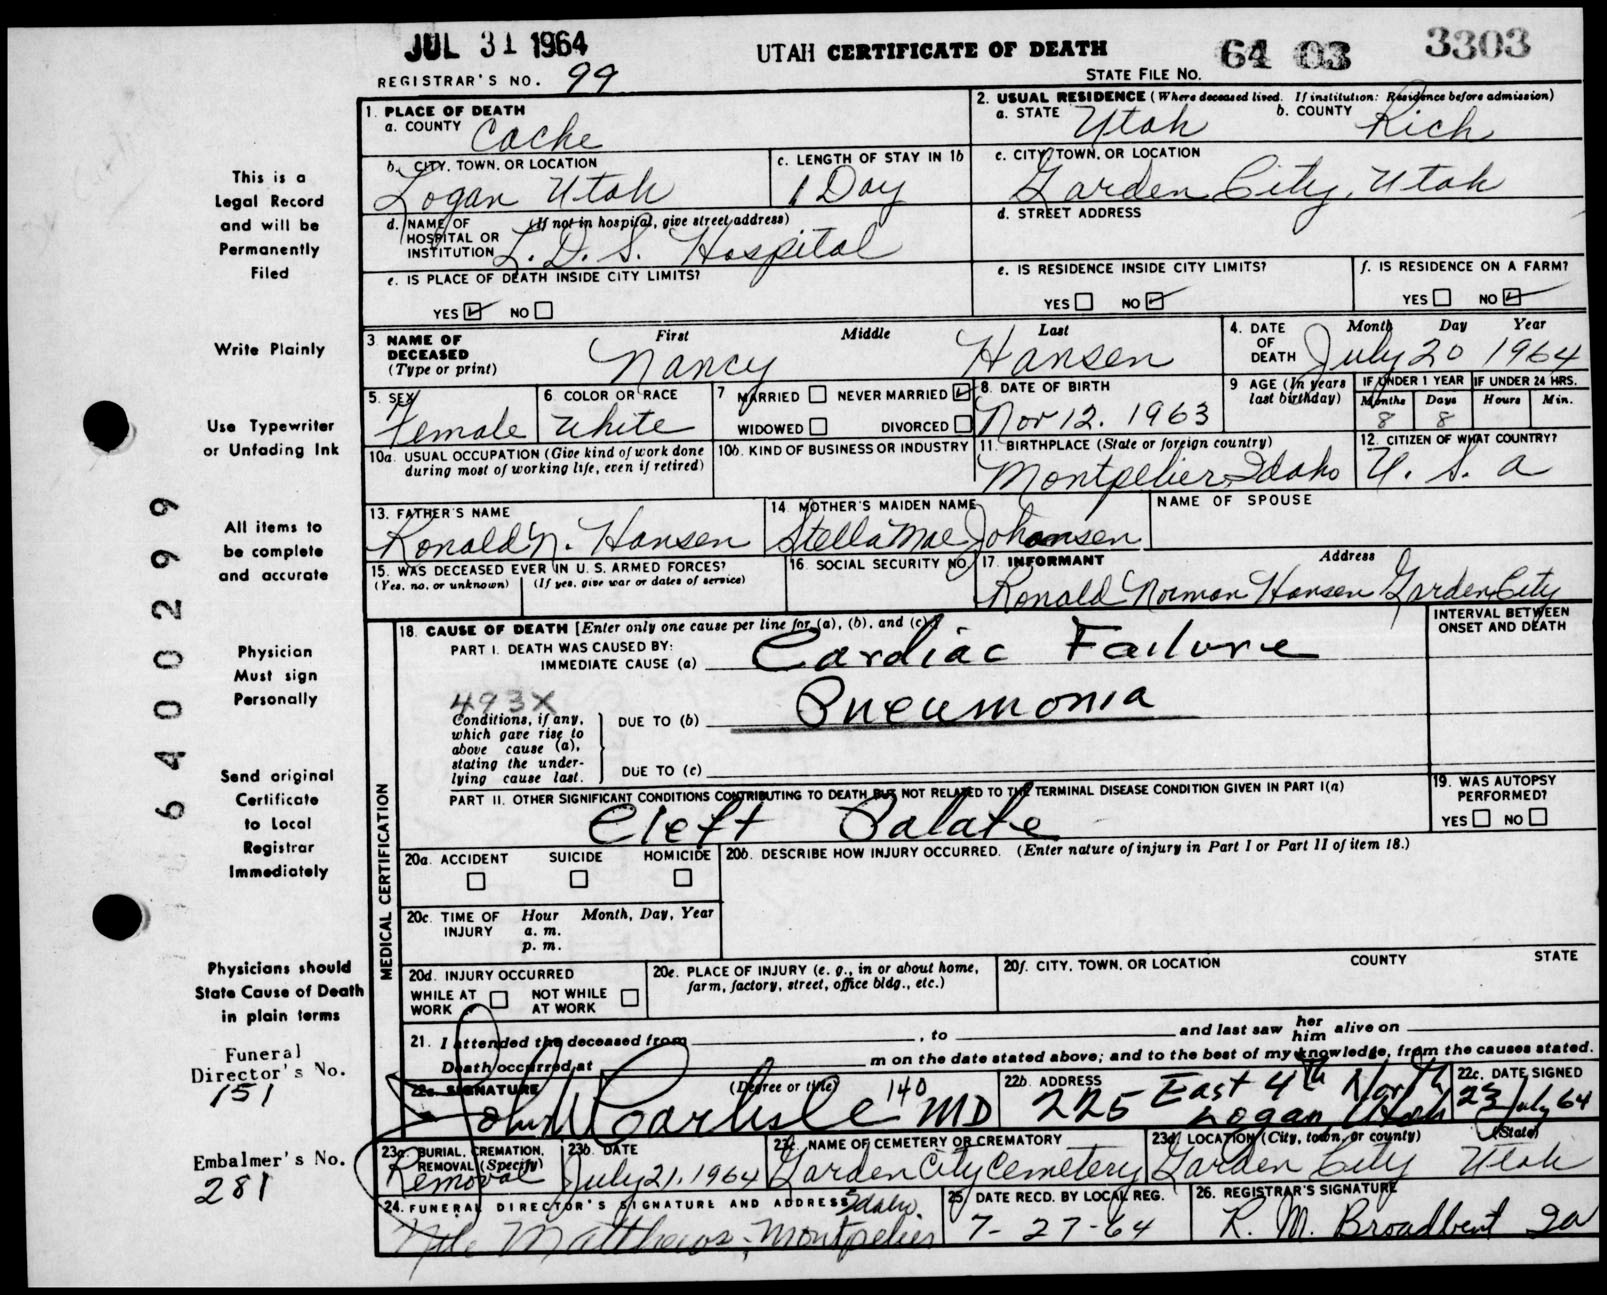 JUL 31 1964
UTAH CERTIFICATE OF DEATH
64 03 3303
STATE FILE NO.
REGISTRAR'S NO. 99
This is a
Legal Record
and will be
Permanently
Filed
Write Plainly
Use Typewriter
or Unfading Ink
All items to
be complete
and accurate
Physician
Must sign
Personally
Send original
Certificate
to Local
Registrar
Immediately
Physicians should
State Cause of Death
in plain terms
Funeral
Director's No.
151
Embalmer's No.
281
6400299
1. PLACE OF DEATH
a. COUNTY Cache
2. USUAL RESIDENCE (Where deceased lived. If institution: Residence before admission)
a. STATE Utah b. COUNTY Rich
b. CITY, TOWN, OR LOCATION
Logan Utah
c. LENGTH OF STAY IN 1b
1 Day
c. CITY, TOWN, OR LOCATION
Garden City, Utah
d. NAME OF HOSPITAL OR INSTITUTION (If not in hospital, give street address)
L.D.S. Hospital
d. STREET ADDRESS
e. IS PLACE OF DEATH INSIDE CITY LIMITS?
YES NO
e. IS RESIDENCE INSIDE CITY LIMITS?
YES NO
f. IS RESIDENCE ON A FARM?
YES NO
3. NAME OF DECEASED (Type or print)
First Middle Last
Nancy Hansen
4. DATE OF DEATH
Month Day Year
July 20 1964
5. SEX
Female
6. COLOR OR RACE
White
7. MARRIED NEVER MARRIED
WIDOWED DIVORCED
8. DATE OF BIRTH
Nov 12. 1963
9. AGE (In years last birthday)
IF UNDER 1 YEAR IF UNDER 24 HRS.
Months Days Hours Min.
8 8
10a. USUAL OCCUPATION (Give kind of work done during most of working life, even if retired)
10b. KIND OF BUSINESS OR INDUSTRY
11. BIRTHPLACE (State or foreign country)
Montpelier Idaho
12. CITIZEN OF WHAT COUNTRY?
U. S. A
13. FATHER'S NAME
Ronald N. Hansen
14. MOTHER'S MAIDEN NAME
Stella Mae Johansen
NAME OF SPOUSE
15. WAS DECEASED EVER IN U. S. ARMED FORCES?
(Yes, no, or unknown) (If yes, give war or dates of service)
16. SOCIAL SECURITY NO.
17. INFORMANT Address
Ronald Norman Hansen Garden City
MEDICAL CERTIFICATION
18. CAUSE OF DEATH [Enter only one cause per line for (a), (b), and (c).]
INTERVAL BETWEEN ONSET AND DEATH
PART I. DEATH WAS CAUSED BY:
IMMEDIATE CAUSE (a) Cardiac Failure
493X
Conditions, if any, which gave rise to above cause (a), stating the underlying cause last.
DUE TO (b) Pneumonia
DUE TO (c)
PART II. OTHER SIGNIFICANT CONDITIONS CONTRIBUTING TO DEATH BUT NOT RELATED TO THE TERMINAL DISEASE CONDITION GIVEN IN PART I(a)
Cleft Palate
19. WAS AUTOPSY PERFORMED?
YES NO
20a. ACCIDENT SUICIDE HOMICIDE
20b. DESCRIBE HOW INJURY OCCURRED. (Enter nature of injury in Part I or Part II of item 18.)
20c. TIME OF INJURY Hour Month, Day, Year
a. m.
p. m.
20d. INJURY OCCURRED
WHILE AT WORK NOT WHILE AT WORK
20e. PLACE OF INJURY (e. g., in or about home, farm, factory, street, office bldg., etc.)
20f. CITY, TOWN, OR LOCATION COUNTY STATE
21. I attended the deceased from , to and last saw her him alive on
Death occurred at m on the date stated above; and to the best of my knowledge, from the causes stated.
22a. SIGNATURE (Degree or title)
John Carlisle 140 MD
22b. ADDRESS
225 East 4th North
Logan Utah
22c. DATE SIGNED
23 July 64
23a. BURIAL, CREMATION, REMOVAL (Specify)
Removal
23b. DATE
July 21, 1964
23c. NAME OF CEMETERY OR CREMATORY
Garden City Cemetery
23d. LOCATION (City, town, or county) (State)
Garden City Utah
24. FUNERAL DIRECTOR'S SIGNATURE AND ADDRESS
Matthews, Montpelier Idaho.
25. DATE RECD. BY LOCAL REG.
7-27-64
26. REGISTRAR'S SIGNATURE
R. M. Broadbent